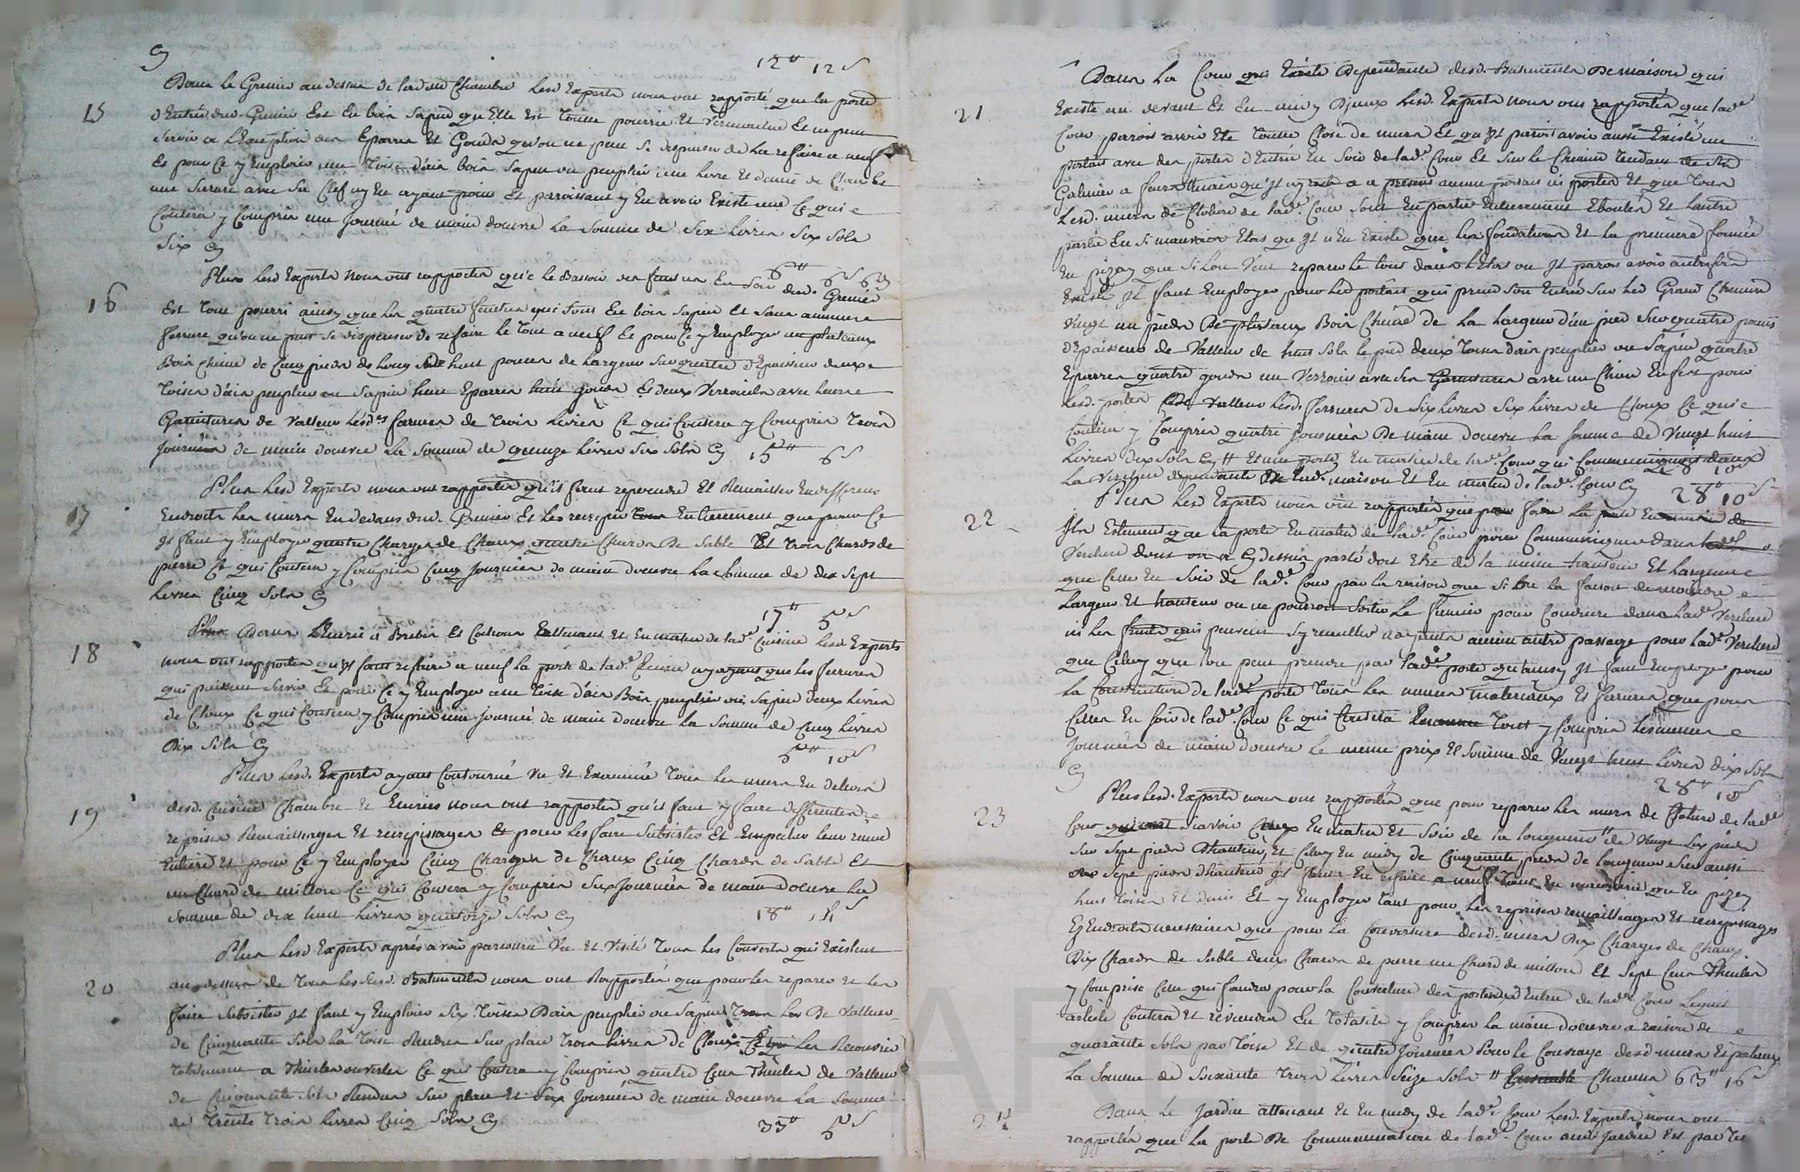 12# 12s
Dans le Grenier au dessus de lad. Chambre Lesd. Experts nous ont rapporté que la porte
15
d'Entrée dud. Grenier Est En bois Sapin qu'Elle Est Toutte pourrie Et Vermoulue Et ne peut
Servir a L'Exception des Eparres Et Gonds qu'on ne peut se dispenser de la refaire a neuf
Et pour Ce y Emploier une Toise d'ais bois Sapin ou peuplier une livre Et demie de Cloux Et
une Serrure avec Sa Clef n'y En ayant point Et paroissant y En avoir Existé une Ce qui
Coutera y Compris une Journée de main d'oeuvre La Somme de Six Livres Six Sols
Six
6# 6s 6d
Plus Lesd. Experts nous ont rapporté que le des fenetres En Soir dud. Grenier
16
Est Tout pourri ainsy que les quatre fenetres qui sont En bois Sapin Et Sans aucune
ferrure qu'on ne peut se dispenser de refaire le Tout a neuf Et pour Ce y Employer un plateaux
Bois Chene de Cinq pieds de long Sur huit pouces de largeur Sur quatre d'Epaisseur deux
Toises d'ais peuplier ou Sapin huit Eparres huit gonds Et deux Verrouils avec leurs
Garnitures de Valleur Lesd. ferrures de Trois Livres Ce qui Coutera y Compris Trois
Journées de main d'oeuvre La Somme de quinze Livres Six Sols 15# 6s
Plus Lesd. Experts nous ont rapporté qu'il faut reprendre Et Remailler En differens
17
Endroits les murs En dedans dud. Grenier Et les recrepir Entierement que pour Ce
Il faut y Employer quatre Charges de Chaux quatre Chards de Sable Et Trois Chards de
pierre Ce qui Coutera y Compris Cinq Journées de main d'oeuvre La Somme de dix Sept
Livres Cinq Sols
17# 5s
Dans L'Ecurie a Brebis Et Cochons attenant Et En matin de lad. Cuisine Lesd. Experts
18
nous ont rapporté qu'il faut refaire a neuf la porte de lad. Ecurie n'y ayant que les ferrures
qui puissent Servir Et pour Ce y Employer une Toise d'ais Bois peuplier ou Sapin deux Livres
de Cloux Ce qui Coutera y Compris une Journée de main d'oeuvre La Somme de Cinq Livres
Dix Sols
5# 10s
Plus Lesd. Experts ayant Contourné Vu Et Examiné Tous les murs En dehors
19
desd. Cuisine Chambre Et Ecuries nous ont rapporté qu'il faut y faire differentes
reprises Remaillages Et recrepissages Et pour les faire Subsister Et Empecher leur ruine
Entiere Et pour Ce y Employer Cinq Charges de Chaux Cinq Chards de Sable Et
un Chard de millon Ce qui Coutera y Compris Six Journées de main d'oeuvre La
Somme de dix huit Livres quatorze Sols
18# 14s
Plus Lesd. Experts après avoir parcouru Vu Et Visité Tous les Couverts qui Existent
20
au dessus de Tous les Susd. Batiments nous ont Rapporté que pour les reparer Et les
faire Subsister Il faut y Emploier Six Toises d'ais peuplier ou Sapin de Valleur
de Cinquante Sols la Toise Rendus Sur place Trois livres de Cloux les Recouvrir
Totalement a Thuiles Ce qui Coutera y Compris quatre Cens Thuiles de Valleur
de Cinquante Sols Rendus Sur place Et dix Journées de main d'oeuvre La Somme
de Trente Trois Livres Cinq Sols
33# 5s
Dans La Cour qui Existe Dependante desd. Batiments De maison qui
21
Existe au devant Et En midy d'yceux Lesd. Experts nous ont rapporté que lad.
Cour paroit avoir Eté Toutte Close de murs Et qu'il paroit avoir aussi Existé un
portail avec des portes d'Entrée En Soir de lad. Cour Et Sur le Chemin Tendant de St
Galmier a qu'il n'y a a present aucun portail ni portes Et que Tous
Lesd. murs de Cloture de lad. Cour Sont En partie Entierement Eboulés Et l'autre
partie En Si mauvais Etat qu'il n'En Existe que les fondations Et la premiere formée
En pizay que Si l'on Veut reparer le tout dans l'Etat ou Il paroit avoir autrefois
Existé Il faut Employer pour led. portail qui prend Son Entrée Sur led. Grand Chemin
Vingt un pieds De plateaux Bois Chêne de La Largeur d'un pied Sur quatre pouces
d'Epaisseur de Valleur de huit Sols le pied deux Toises d'ais peuplier ou Sapin quatre
Eparres quatre gonds un Verrouis avec Ses Garnitures avec un Chien Enfert pour
Lesd. portes Valleur Lesd. ferrures de Six Livres Six Livres de Cloux Ce qui
Coutera y Compris quatre Journées De main d'oeuvre La Somme de Vingt huit
Livres Dix Sols Et une porte En matin de lad. Cour qui
La Verchere dependante de lad. maison Et En matin de lad. Cour
28# 10s
Plus Lesd. Experts nous ont rapporté que pour faire La porte En matin de
22
Ils Estiment que la porte En matin de lad. Cour pour Communiquer dans lad.
Verchere dont on a Cy dessus parlé doit Etre de la même hauteur Et Largeur
que Celle En Soir de lad. Cour par la raison que Si on la faisoit de moindre
Largeur Et hauteur on ne pourroit Sortir Le fumier pour Conduire dans lad. Verchere
ni les fruits qui peuvent S'y recueillir n'ayant aucun autre passage pour lad. Verchere
que Celuy que l'on peut prendre par lad. porte qu'ainsy Il faut Employer pour
La Construction de lad. porte Tous les mêmes materiaux Et ferrures que pour
Celles En Soir de lad. Cour Ce qui Coutera Tout y Compris les mêmes
Journées de main d'oeuvre Le même prix Et Somme de Vingt huit Livres dix Sols
28# 10s
Plus Lesd. Experts nous ont rapporté que pour reparer les murs de Cloture de lad.
23
Cour Scavoir Ceux En matin Et Soir de la longueur de Vingt Six pieds
Sur Sept pieds d'hauteur Et Celuy En midy de Cinquante pieds de longueur Sur aussi
Sept pieds d'hauteur Il faut En refaire a neuf Tant En maconnerie qu'En pizay
huit Toises Et demie Et y Employer tant pour les reprises remaillages Et recrepissages
Es Endroits necessaires que pour La Couverture desd. murs Dix Charges de Chaux
Dix Chards de Sable deux Chards de pierre un Chard de millon Et Sept Cens Thuiles
y Comprise Celle qui faudra pour la Couverture des portes d'Entrée de lad. Cour Lequel
article Coutera Et reviendra En Totalité y Compris la main d'oeuvre a raison de
quarante Sols par Toise Et de quatre Journées Pour le Couvrage desd. murs Et portaux
La Somme de Soixante Trois Livres Seize Sols 63# 16s
24
Dans Le Jardin attenant Et En midy de lad. Cour Lesd. Experts nous ont
rapporté que la porte De Communication de lad. Cour aud. Jardin Est par Terre